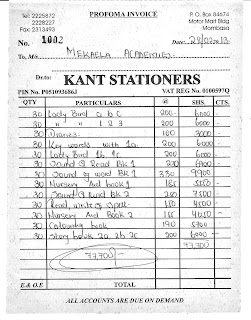 PROFOMA INVOICE
Tel: 2225872
2228227
Fax 2313493
P. O. Box 84674
Motor Mart Bldg
Mombasa
No. 1002
Date:
To, M/s MEKAELA ACADEMIES
Dr.to: KANT STATIONERS
PIN No. P051093686J VAT REG No. 0100597Q
QTY PARTICULARS @ SHS. CTS.
30 Lady Bird a b c 200 6000 -
30 " " 1 2 3 200 6000 -
30 Diaries 100 3000 -
30 Key words with 1a 200 6000 -
30 Lady Bird 1b 1c 200 6000 -
30 Sound & Read BK 1 220 -
30 Sound & word BK 1 330 9900 -
30 Nursery Aid book 1 185 5550 -
30 Sound & Read bk 2 250 7500 -
30 Read, write & spell 150 4500 -
30 Nursery Aid Book 2 -
30 Colouring book 190 5700 -
30 Story book 2a 2b 2c 200 6000 -
77,700
77,700 -
E.& O.E TOTAL
ALL ACCOUNTS ARE DUE ON DEMAND